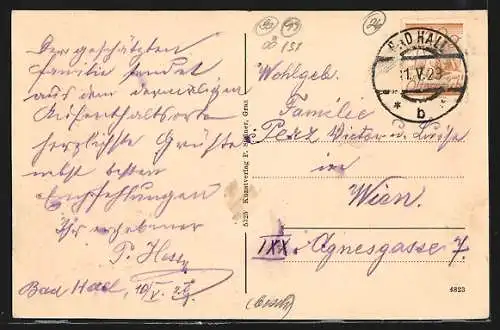 Der geschätzten
Familie sendet
aus dem dermaligen
Aufenthaltsorte
herzlichste Grüße
nebst besten
Empfehlungen
Ihr ergebener
P. Hess
Bad Hall, 10/V. 29
5725 Kunstverlag F. Groiner, Graz
BAD HALL
11.V.29
* b *
Wohlgeb.
Familie
Perz Victor u. Luise
in
Wien.
IXX. Agnesgasse 7.
4823